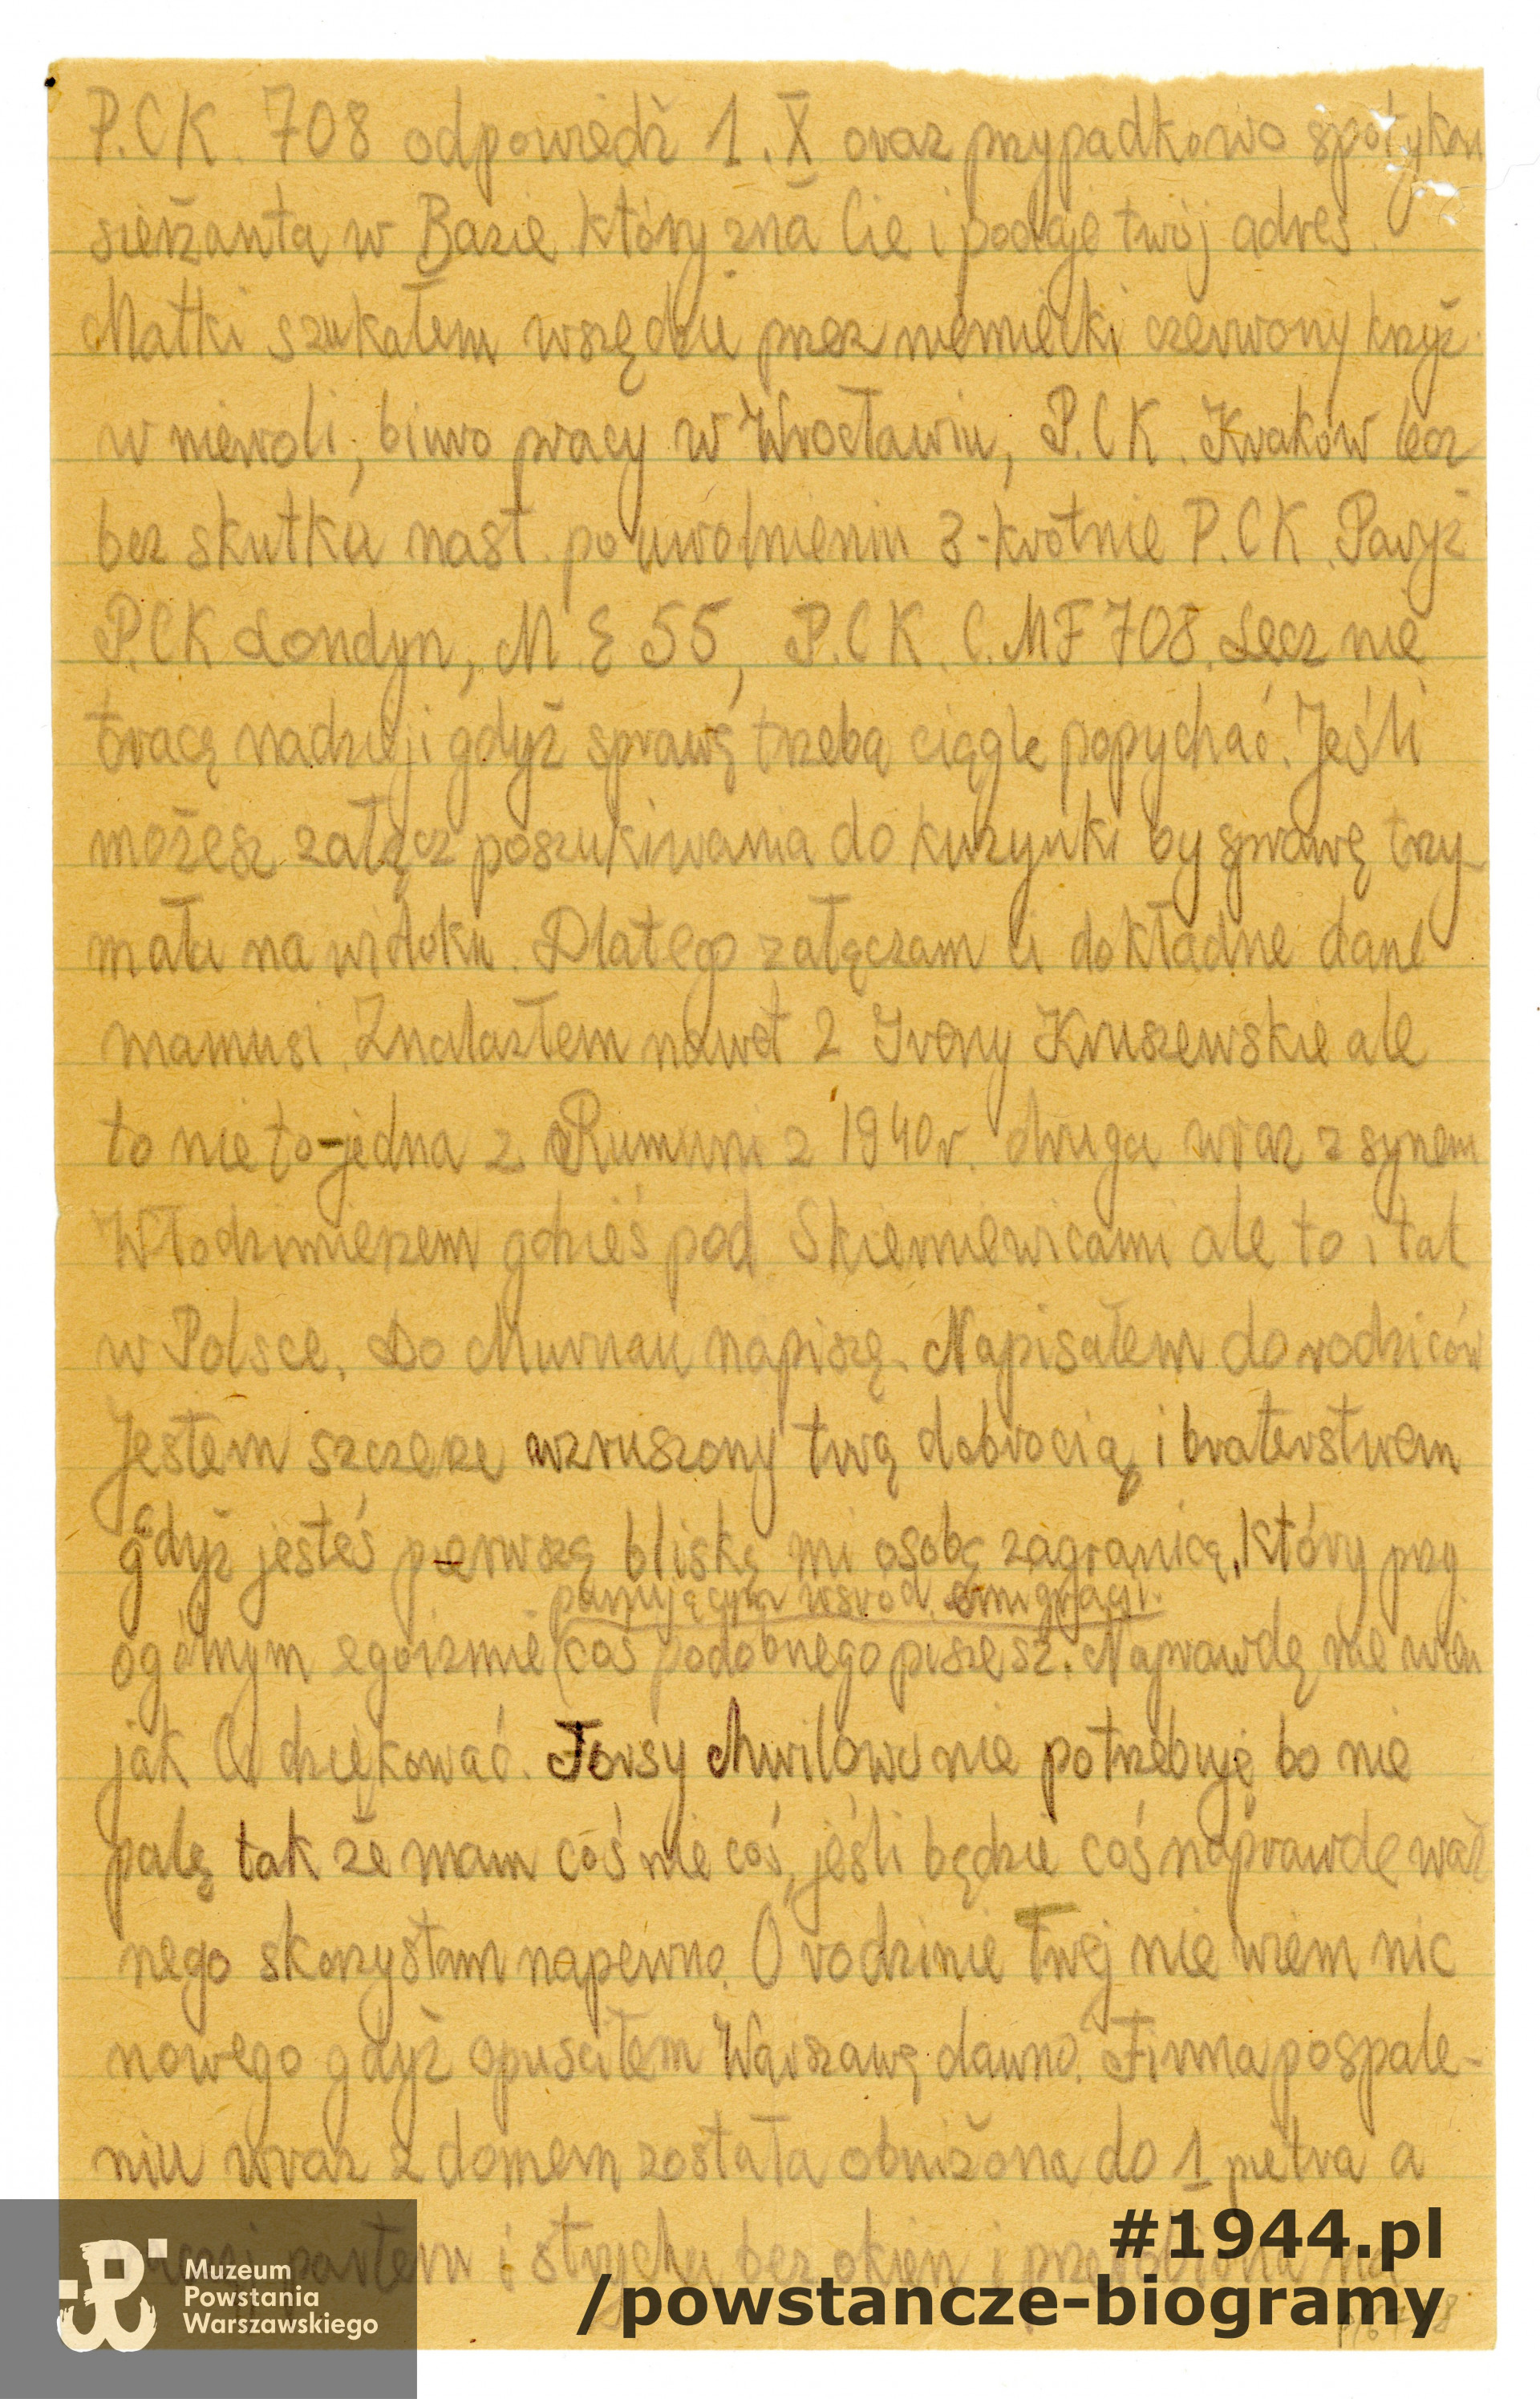 P.C.K. 708 odpowiedź 1. X oraz przypadkowo spotykam
sierżanta w Bazie który zna Cie i podaje twój adres.
Matki szukałem wszędzie przez niemiecki czerwony krzyż
w niewoli, biuro pracy w Wrocławiu, P.C.K. Kraków lecz
bez skutku nast. po uwolnieniu 3-krotnie P.C.K. Paryż
P.C.K Londyn, M.E 55, P.C.K. C.M.F 708. Lecz nie
tracę nadzieji gdyż sprawę trzeba ciągle popychać. Jeśli
możesz załącz poszukiwania do kuzynki by sprawę trzy-
mała na widoku. Dlatego załączam ci dokładne dane
mamusi. Znalazłem nawet 2 Ireny Kruszewskie ale
to nie to-jedna z Rumuni z 1940r. druga wraz z synem
Włodzimierzem gdzieś pod Skierniewicami ale to i tak
w Polsce. Do Murnau napiszę. Napisałem do rodziców
Jestem szczerze wzruszony twą dobrocią i braterstwem
gdyż jesteś pierwszą bliską mi osobą zagranicą, który przy
panującym wśród emigracji.
ogólnym egoizmie (coś podobnego piszesz. Naprawdę nie wiem
jak Ci dziękować. Forsy chwilowo nie potrzebuję bo nie
palę tak że mam coś nie coś, jeśli będzie coś naprawdę waż
nego skorzystam napewno. O rodzinie Twej nie wiem nic
nowego gdyż opuściłem Warszawę dawno. Firma po spale-
niu wraz z domem została obniżona do 1 piętra a
parteru i strychu bez okien i przerobiona na
#1944.pl
/powstancze-biogramy
Muzeum
Powstania
Warszawskiego